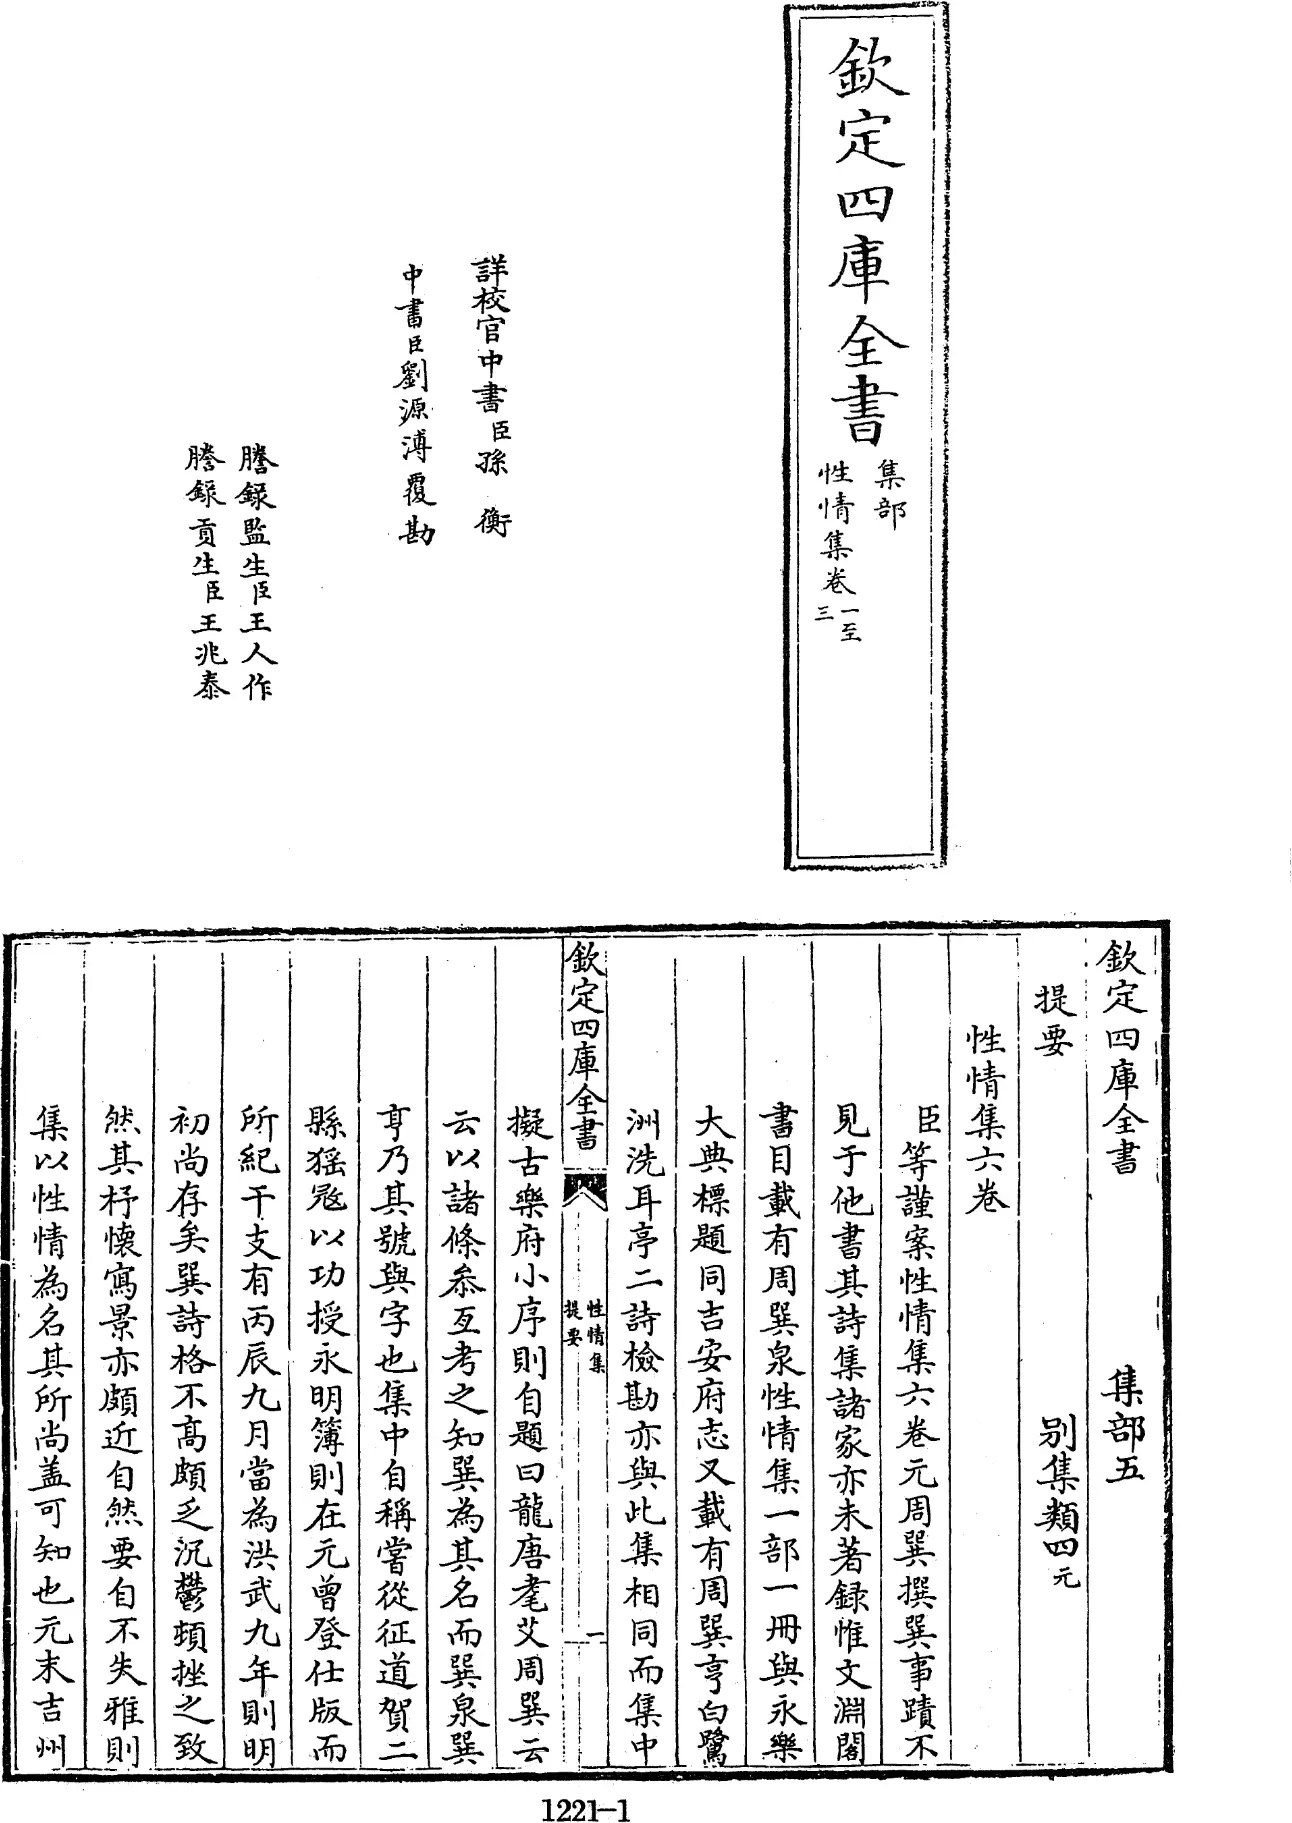 欽定四庫全書
集部
性情集卷一至三
詳校官中書臣孫衡
中書臣劉源溥覆勘
謄錄監生臣王人作
謄錄貢生臣王兆泰
欽定四庫全書 集部五
提要 别集類四元
性情集六卷
臣等謹案性情集六卷元周巽撰巽事蹟不
見于他書其詩集諸家亦未著録惟文淵閣
書目載有周巽泉性情集一部一冊與永樂
大典標題同吉安府志又載有周巽亨白鷺
洲洗耳亭二詩檢勘亦與此集相同而集中
欽定四庫全書
性情集
提要
一
擬古樂府小序則自題曰龍唐耄艾周巽云
云以諸條叅互考之知巽為其名而巽泉巽
亨乃其號與字也集中自稱嘗從征道賀二
縣猺冦以功授永明簿則在元曾登仕版而
所紀干支有丙辰九月當為洪武九年則明
初尚存矣巽詩格不髙頗乏沉鬱頓挫之致
然其抒懷寫景亦頗近自然要自不失雅則
集以性情為名其所尚盖可知也元末吉州
1221-1